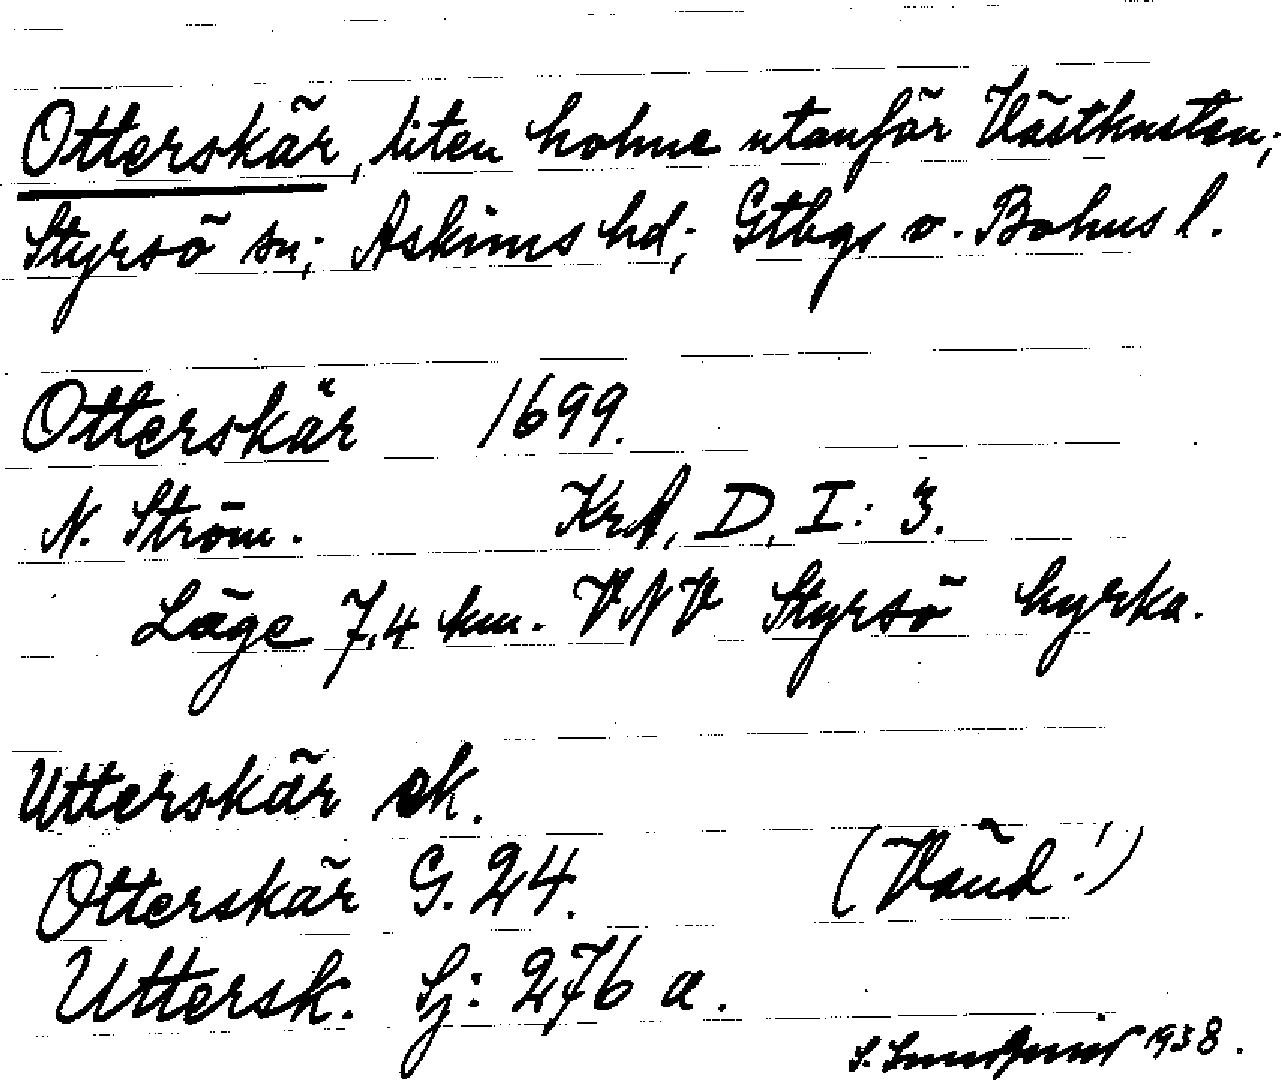 Otterskär, liten holme utanför Västkusten;
Styrsö sn; Askims hd; Gtbgs o. Bohus l.
Otterskär 1699.
N. Ström. KrA, D, I: 3.
Läge 7,4 km. VNV Styrsö kyrka.
Utterskär ek.
Otterskär G. 24. (Vänd!)
Uttersk. Sj: 276 a.
S. 1938.